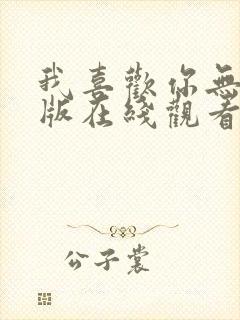 我喜歡你無
版在綫觀看
公子裳